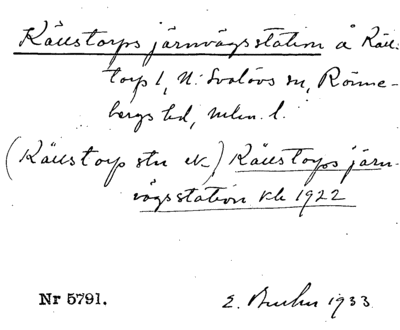 Källstorps järnvägsstation å Käll-
torp 1, N. Svalövs sn, Rönne-
bergs hd, Mlm. l.
(Källstorp stn ek) Källstorps järn-
vägsstation kb 1922
Nr 5791. E. 1933